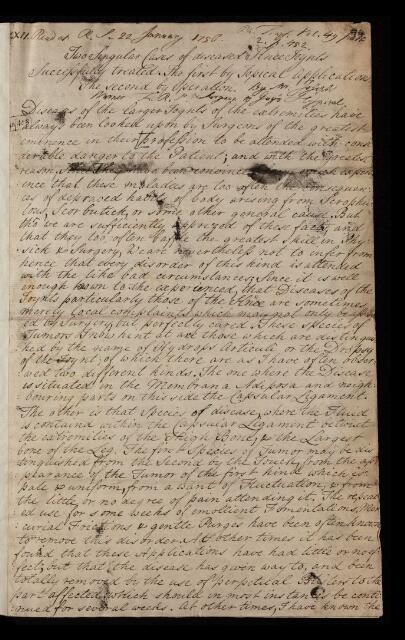 XII Read at R. S. 22 January 1756.
Two Singular Cases of diseased Knee Joynts
Successfully treated. The first by Topical applications
The second by operation. By Mr
Surgeon Guy's Hospital
Diseases of the larger Joynts of the extremities have
always been looked upon by Surgeons of the greatest
eminence in their profession to be attended with consi
derable danger to the Patient; and with the greatest
reason, experi
ence that these maladies are too often the consequen
ces of depraved habits of body arising from Scrophu
lous, Scorbutick, or some other general cause. But
tho' we are sufficiently apprized of these facts, and
that they too often baffle the greatest skill in Phy
sick & Surgery; We are nevertheless not to infer from
hence that every disorder of this kind is attended
with the like bad circumstances; Since it is well
enough known to the experienced, that Diseases of the
Joynts particularly those of the Knee are sometimes
merely local complaints which may not only be
ed by Surgery, but perfectly cured. These species of
Tumors I now hint at are those which are distinguis
hed by the name of Hydrops Articuli or the Dropsy
of the Joynt; of which there are as I have often obser
ved two different kinds. The one where the Disease
is situated in the Membrana Adiposa and neigh
bouring parts on this side the Capsular Ligament.
The other is that Species of disease, where the Fluid
is contained within the Capsular Ligament between
the extremities of the Thigh Bone, & the Largest
bone of the Leg. The first Species of Tumor may be dis
tinguished from the Second by the touch, from the ap
pearance of the Tumor of the first kind which is
pale & uniform, from a want of Fluctuation, & from
the little, or no degree of pain attending it. The repeat
ed use for some weeks of emollient Fomentations, Mer
curial Frictions & gentle Purges have been often known
to remove this disorder. At other times it has been
found that these Applications have had little or no ef
fect; but that the disease has given way to, and been
totally removed by the use of perpetual Blisters to the
part affected, which should in most instances be conti
nued for several weeks. At other times, I have known the